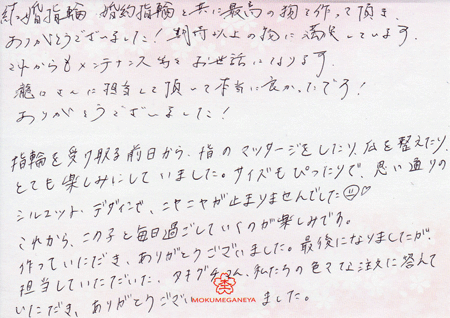 結婚指輪、婚約指輪と共に最高の物を作って頂き、
ありがとうございました！期待以上の物に満足しています。
これからもメンテナンス等をお世話になります。
瀧口さんに担当して頂いて本当に良かったです！
ありがとうございました！
指輪を受け取る前日から、指のマッサージをしたり、爪を整えたり、
とても楽しみにしていました。サイズもぴったりで、思い通りの
シルエット・デザインで、ニヤニヤが止まりませんでした
これから、この子と毎日過ごしていくのが楽しみです。
作っていただき、ありがとうございました。最後になりましたが、
担当していただいた、タキグチさん、私たちの色々な注文に答えて
いただき、ありがとうございました。
MOKUMEGANEYA